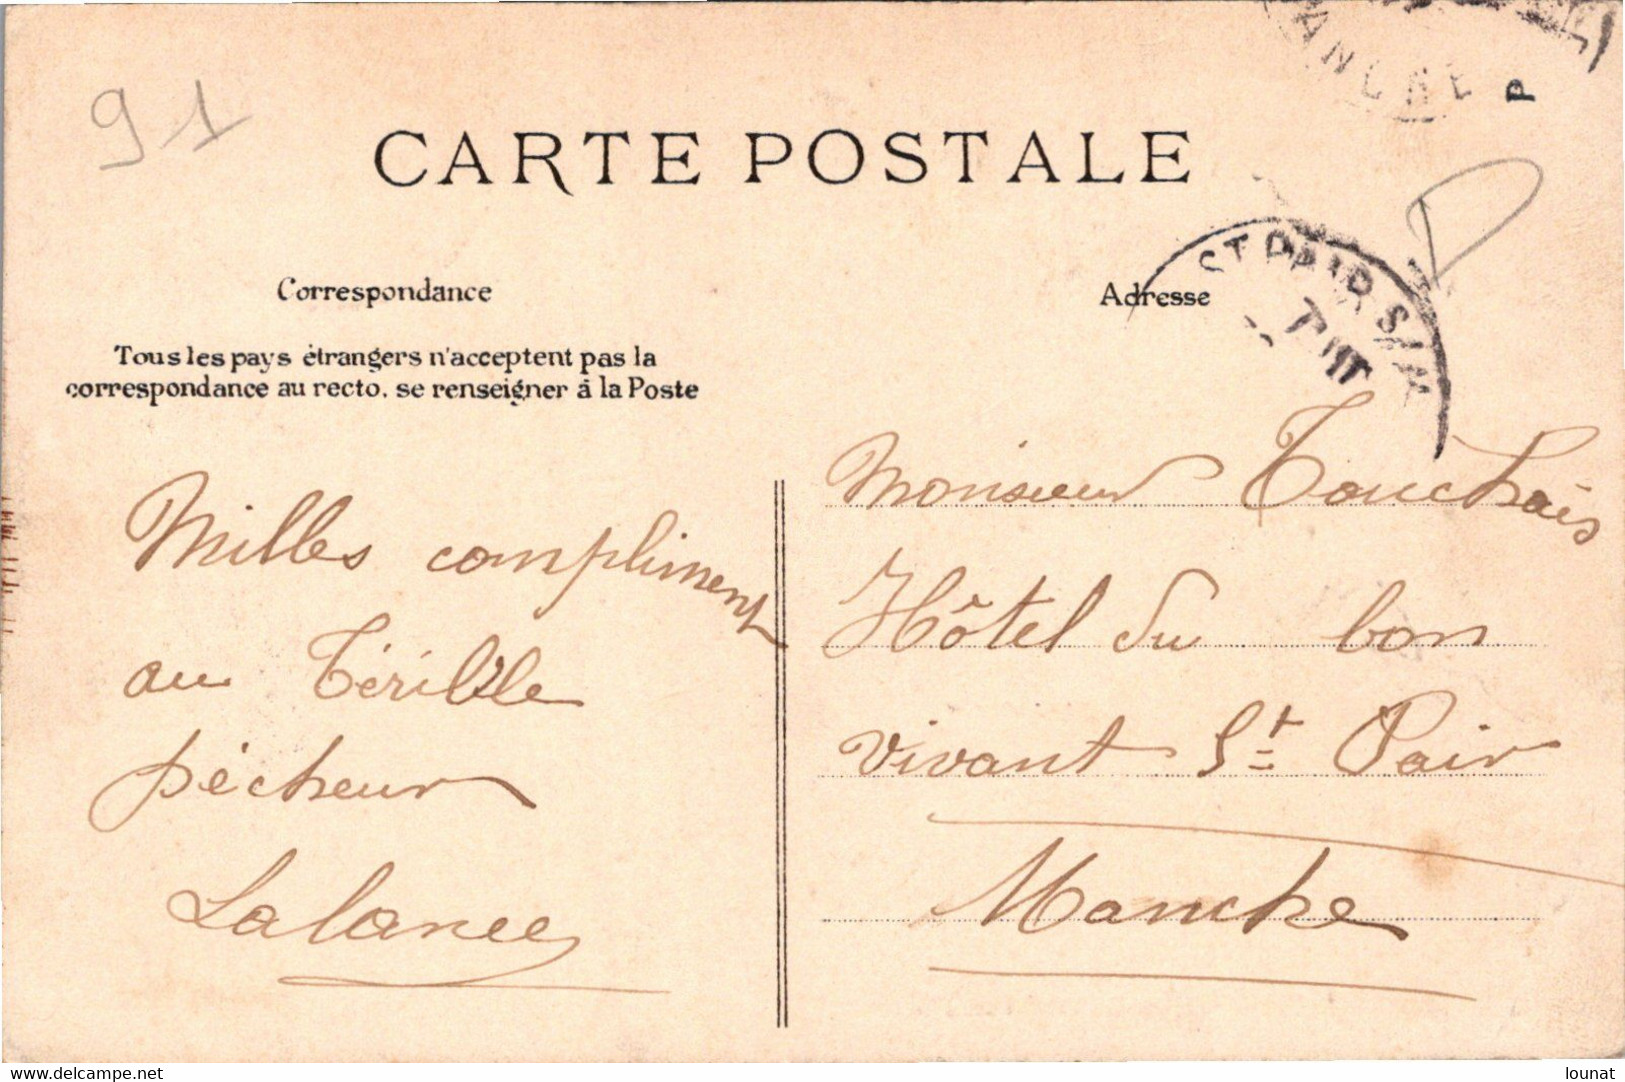 91
CARTE POSTALE
MANCHE
P
ST PAIR S/M
Correspondance
Adresse
Tous les pays étrangers n'acceptent pas la
correspondance au recto. se renseigner à la Poste
Milles compliment
au Térible
pécheur
Lalance
Monsieur Touchais
Hôtel du bon
vivant St Pair
Manche
delcampe.net
lounat